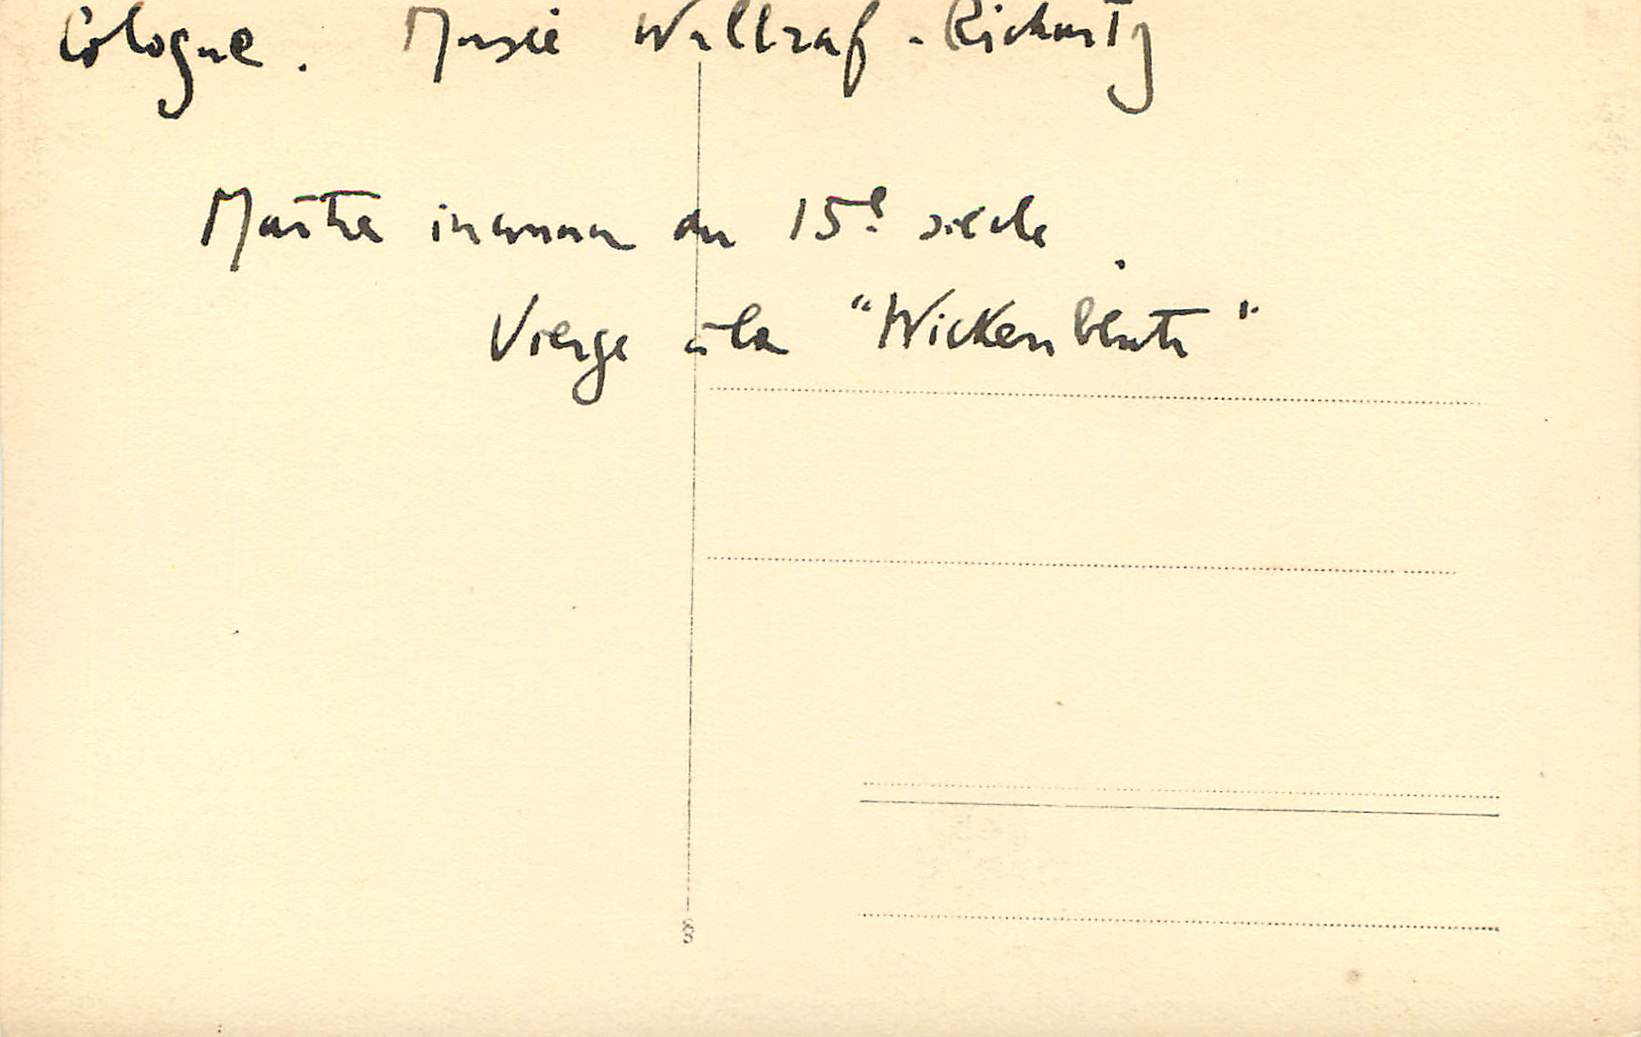 Cologne. Musée Wallraf-Richartz
Maître inconnu du 15e siècle.
Vierge à la "Wickenblüte"